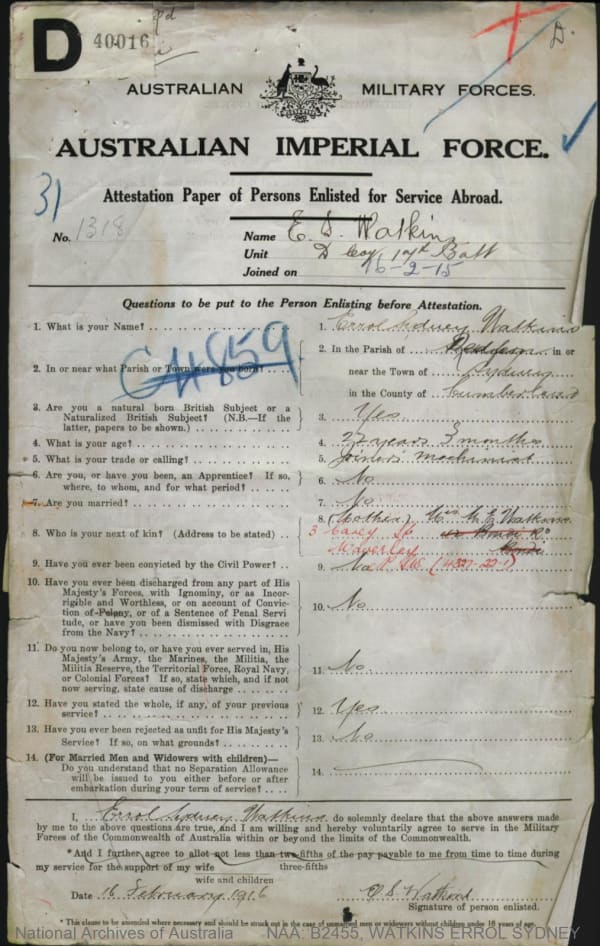 D 40016
AUSTRALIAN MILITARY FORCES.
AUSTRALIAN IMPERIAL FORCE.
31
Attestation Paper of Persons Enlisted for Service Abroad.
No. 1318 Name E. S. Watkins
Unit D Coy 17th Batt
Joined on 16-2-15
Questions to be put to the Person Enlisting before Attestation.
1. What is your Name? 1. Errol Sydney Watkins
2. In or near what Parish or Town were you born? 2. In the Parish of in or
near the Town of Sydney
in the County of Cumberland
3. Are you a natural born British Subject or a
Naturalized British Subject? (N.B.—If the
latter, papers to be shown.) 3. Yes
4. What is your age? 4. 22 years 3 months
5. What is your trade or calling? 5. Joiners Machinist
6. Are you, or have you been, an Apprentice? If so,
where, to whom, and for what period? 6. No
7. Are you married? 7. No
8. Who is your next of kin? (Address to be stated) 8. (Mother) Mrs M. E. Watkins
3 Carey St
Waverley
9. Have you ever been convicted by the Civil Power? 9. No
10. Have you ever been discharged from any part of His
Majesty's Forces, with Ignominy, or as Incor-
rigible and Worthless, or on account of Convic-
tion of Felony, or of a Sentence of Penal Servi-
tude, or have you been dismissed with Disgrace
from the Navy? 10. No
11. Do you now belong to, or have you ever served in, His
Majesty's Army, the Marines, the Militia, the
Militia Reserve, the Territorial Force, Royal Navy,
or Colonial Forces? If so, state which, and if not
now serving, state cause of discharge 11. No
12. Have you stated the whole, if any, of your previous
service? 12. Yes
13. Have you ever been rejected as unfit for His Majesty's
Service? If so, on what grounds? 13. No
14. (For Married Men and Widowers with children)—
Do you understand that no Separation Allowance
will be issued to you either before or after
embarkation during your term of service? 14.
I, Errol Sydney Watkins do solemnly declare that the above answers made
by me to the above questions are true, and I am willing and hereby voluntarily agree to serve in the Military
Forces of the Commonwealth of Australia within or beyond the limits of the Commonwealth.
*And I further agree to allot not less than two-fifths of the pay payable to me from time to time during
three-fifths
my service for the support of my wife
wife and children
Date 16 February 1916 E S Watkins
Signature of person enlisted.
*This clause to be amended where necessary and should be struck out in the case of unmarried men or widowers without children under 18 years of age.
National Archives of Australia NAA: B2455, WATKINS ERROL SYDNEY